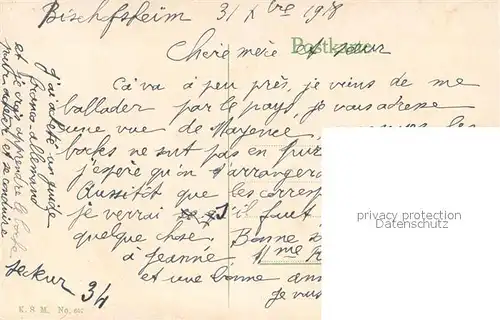 Bischofsheim 31 Xbre 1918
Postkarte
Chère mère et sœur
Ça va à peu près, je viens de me
ballader par le pays, je vous adresse
une vue de Mayence, les
bocks ne sont pas en
j'espère qu'on s'arrangera
Aussitôt que les corresp
je verrai s'il faut
quelque chose. Bonne
à Jeanne Mme
et une bonne ann
je vous
J'ai acheté un guide
franco-allemand
et je vais apprendre
et se conduire
34
K. & M. No.
privacy protection
Datenschutz